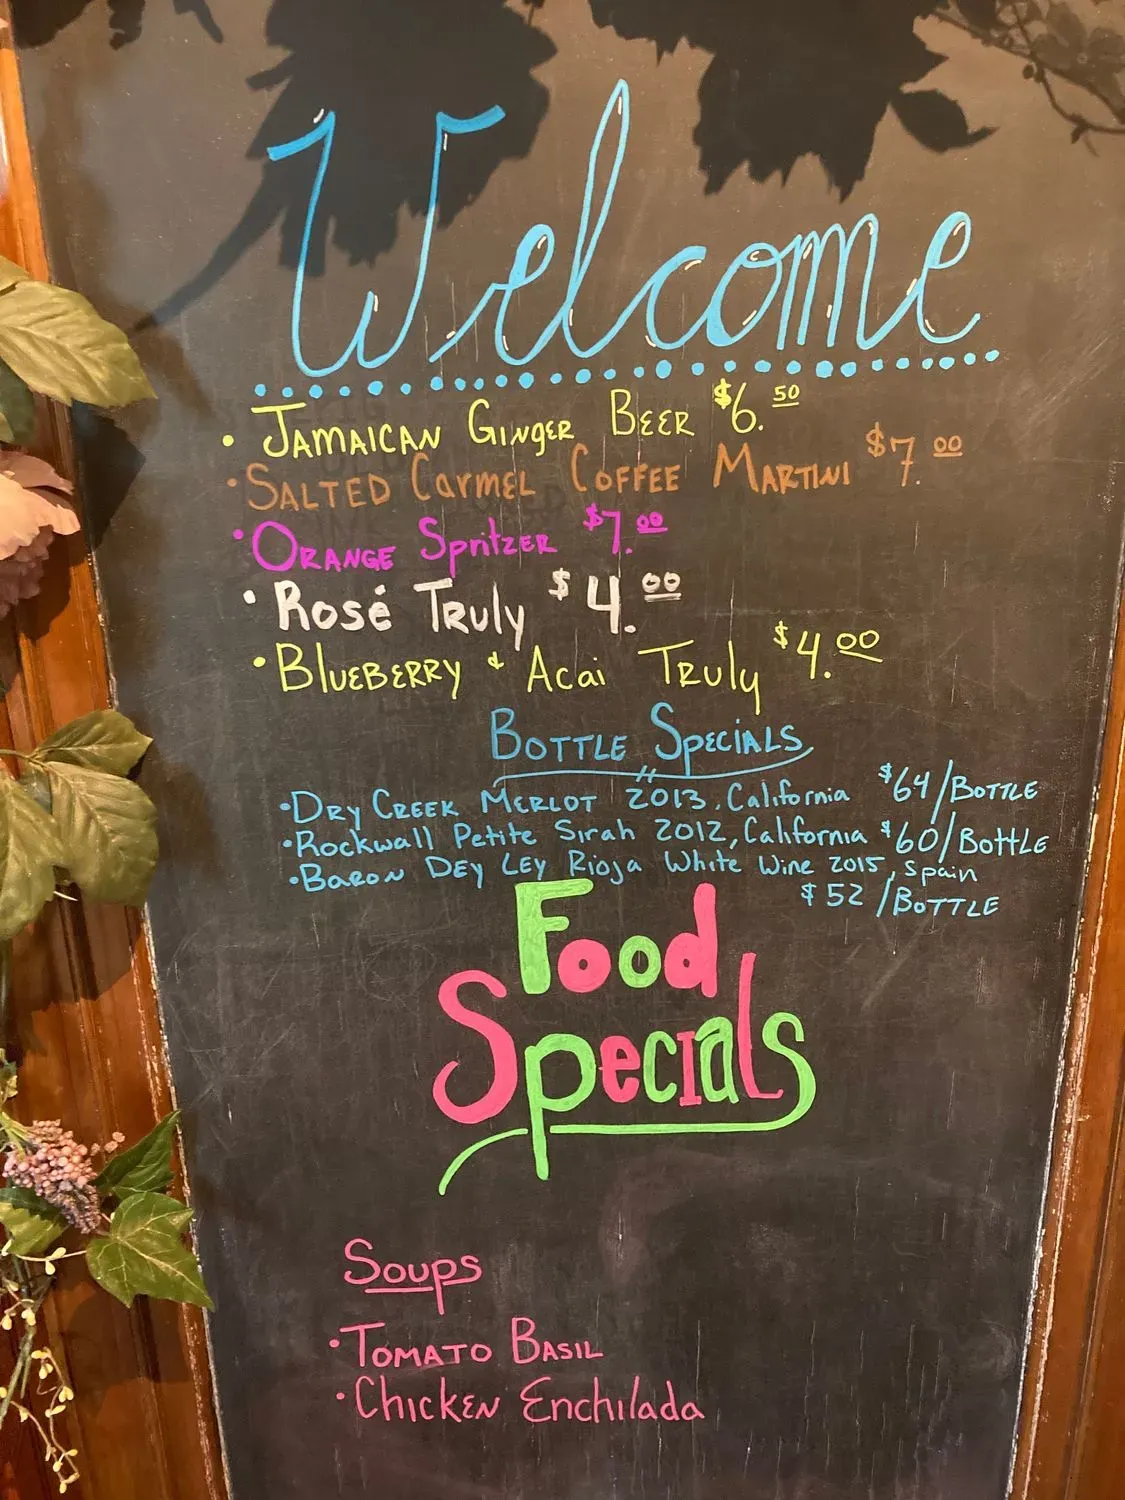 Welcome
• JAMAICAN GINGER BEER $6.50
• SALTED CARMEL COFFEE MARTINI $7.00
• ORANGE SPRITZER $7.00
• Rosé TRULY $4.00
• BLUEBERRY & Acai TRULY $4.00
BOTTLE SPECIALS
• DRY CREEK MERLOT 2013, California $64/BOTTLE
• Rockwall Petite Sirah 2012, California $60/BOTTLE
• BARON DEY LEY Rioja White Wine 2015, Spain
$52/BOTTLE
Food
Specials
Soups
• TOMATO BASIL
• Chicken Enchilada